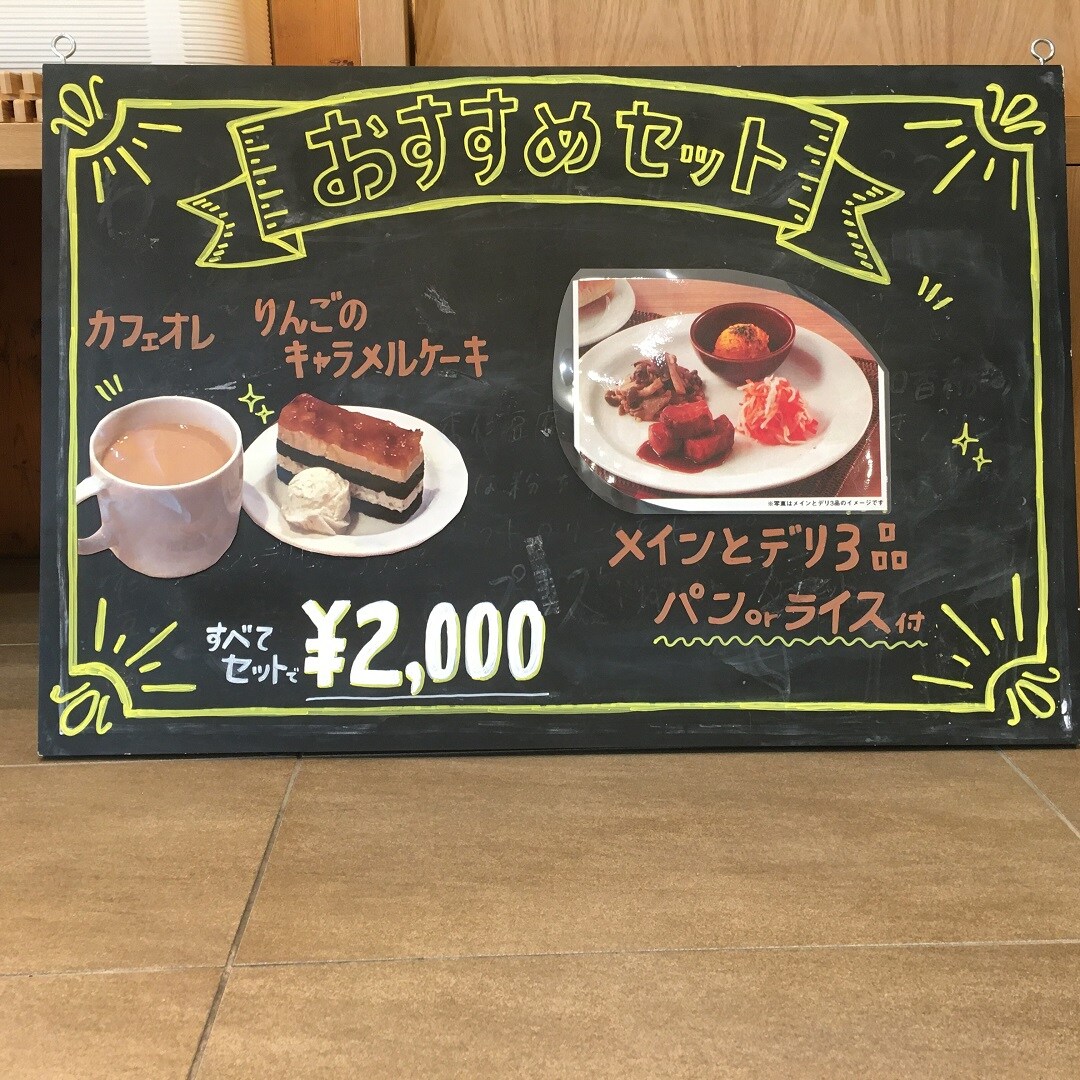 おすすめセット
カフェオレ
りんごの
キャラメルケーキ
※写真はメインとデリ3品のイメージです
メインとデリ3品
パンorライス付
すべて
セットで
¥2,000